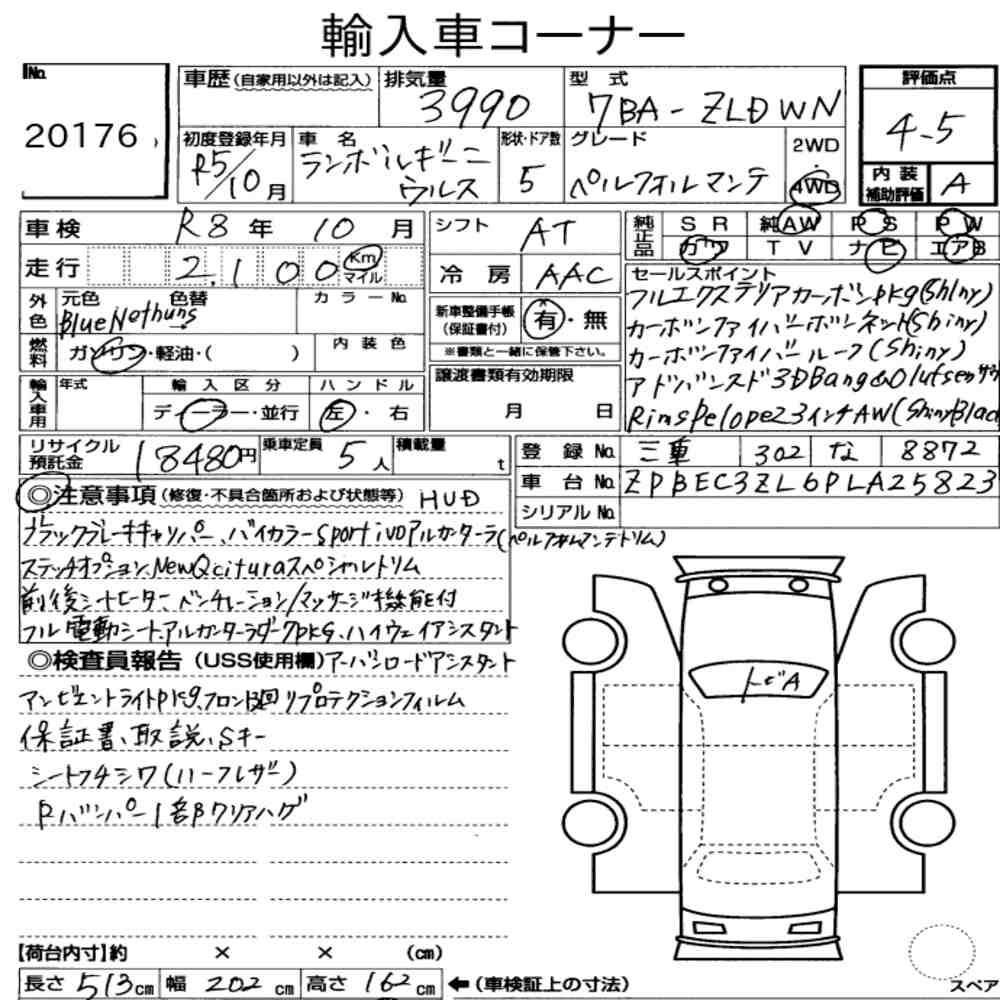 輸入車コーナー
No.
20176
車歴 (自家用以外は記入)
排気量
3990
型式
7BA-ZLDWN
評価点
4-5
初度登録年月
R5/10月
車名
ランボルギーニ
ウルス
形状・ドア数
5
グレード
ペルフォルマンテ
2WD
・
4WD
内装
補助評価
A
車検 R8年 10月
シフト AT
純正品
SR 純AW PS PW
カワ TV ナビ エアB
走行 2,100 Km
マイル
冷房 AAC
外色
元色 色替
Blue Nethuns
カラーNo.
新車整備手帳
(保証書付)
有・無
※書類と一緒に保管下さい。
セールスポイント
フルエクステリアカーボンpkg(Shiny)
カーボンファイバーボンネット(Shiny)
カーボンファイバールーフ(Shiny)
アドバンスド3DBang&Olufsenサウ
RimsPelope23インチAW(ShinyBlack
燃料
ガソリン・軽油・( )
内装色
輸入車用
年式
輸入区分
ディーラー・並行
ハンドル
左・右
譲渡書類有効期限
月 日
リサイクル
預託金
18480円
乗車定員
5人
積載量
t
登録No. 三重 302 な 8872
車台No. ZPBEC3ZL6PLA25823
シリアルNo.
◎注意事項(修復・不具合箇所および状態等) HUD
ブラックブレーキキャリパー、バイカラーSportivoアルカンターラ(ペルフォルマンテトリム)
ステッチオプション、NewQcituraスペシャルトリム
前後シートヒーター、ベンチレーション/マッサージ機能付
フル電動シート、アルカンターラダークpkg、ハイウェイアシスタント
◎検査員報告(USS使用欄)アーバンロードアシスタント
アンビエントライトpkg、フロント廻リプロテクションフィルム
保証書、取説、Sキー
シートフチシワ(ハーフレザー)
Rバンパー1部クリアハゲ
トビA
【荷台内寸】約 × × (cm)
長さ 513cm 幅 202cm 高さ 162cm ←(車検証上の寸法)
スペア